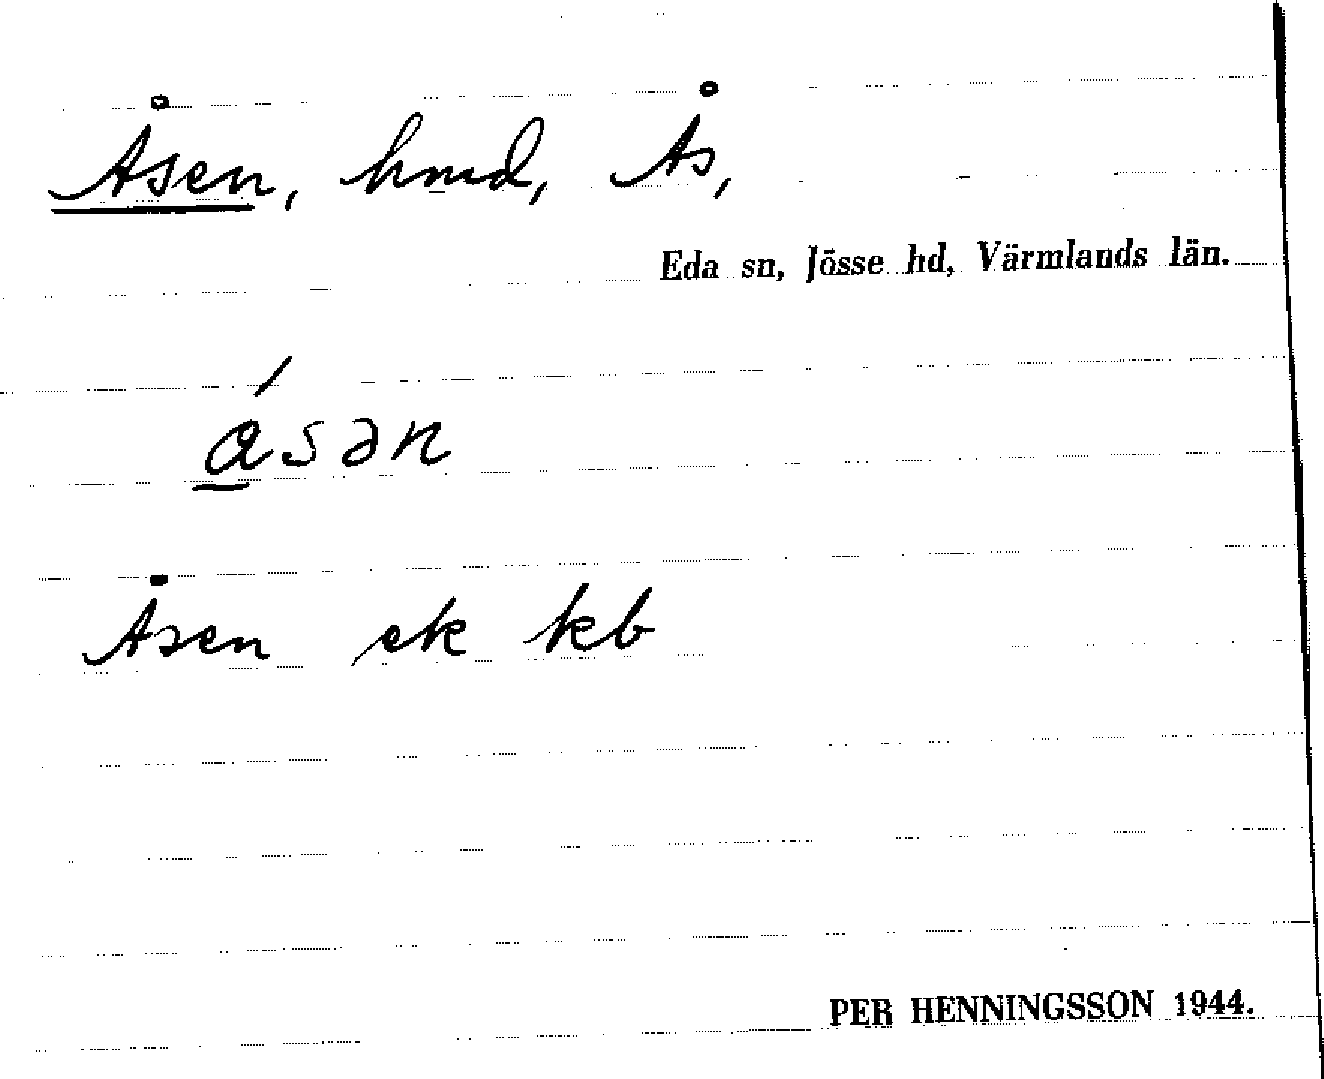 Åsen, hmd, Ås,
Eda sn, Jösse hd, Värmlands län.
á̲sən
Åsen ek kb
PER HENNINGSSON 1944.